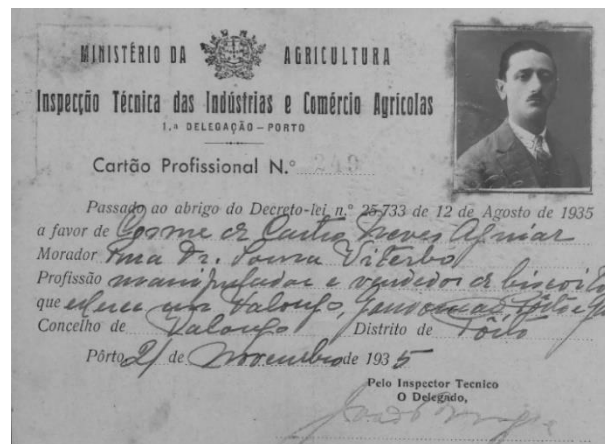 MINISTÉRIO DA AGRICULTURA
Inspecção Técnica das Indústrias e Comércio Agrícolas
1.ª DELEGAÇÃO - PORTO
Cartão Profissional N.º 249
Passado ao abrigo do Decreto-lei n.º 25-733 de 12 de Agosto de 1935
a favor de Cosme de Castro Neves Aguiar
Morador Rua Dr. Sousa Viterbo
Profissão manipulador e vendedor de
que exerce em Valongo, Gondomar
Concelho de Valongo Distrito de Pôrto
Pôrto 21 de Novembro de 1935
Pelo Inspector Tecnico
O Delegado,